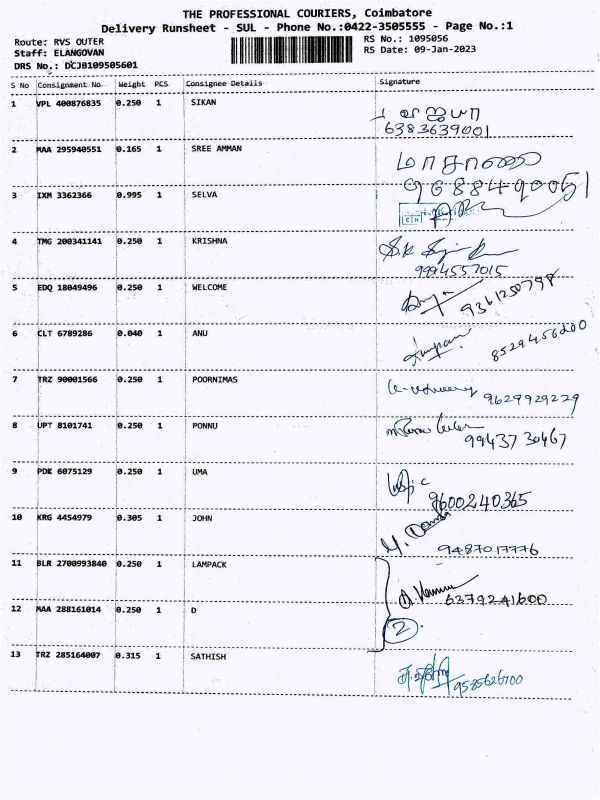 THE PROFESSIONAL COURIERS, Coimbatore
Delivery Runsheet - SUL - Phone No.:0422-3505555 - Page No.:1
Route: RVS OUTER
RS No.: 1095056
Staff: ELANGOVAN
RS Date: 09-Jan-2023
DRS No.: DCJB109505601
S No Consignment No Weight PCS Consignee Details Signature
1 VPL 400876835 0.250 1 SIKAN
விஜயா
6383639001
2 MAA 295940551 0.165 1 SREE AMMAN
மாசாணி
9688490051
3 IXM 3362366 0.995 1 SELVA
4 TMG 200341141 0.250 1 KRISHNA
9994557015
5 EDQ 18049496 0.250 1 WELCOME
9361250798
6 CLT 6789286 0.040 1 ANU
8529456200
7 TRZ 90001566 0.250 1 POORNIMAS
9629929229
8 UPT 8101741 0.250 1 PONNU
9943730467
9 PDK 6075129 0.250 1 UMA
9600240365
10 KRG 4454979 0.305 1 JOHN
9487017776
11 BLR 2700993840 0.250 1 LAMPACK
6379241600
12 MAA 288161014 0.250 1 D
2
13 TRZ 285164007 0.315 1 SATHISH
9585626700